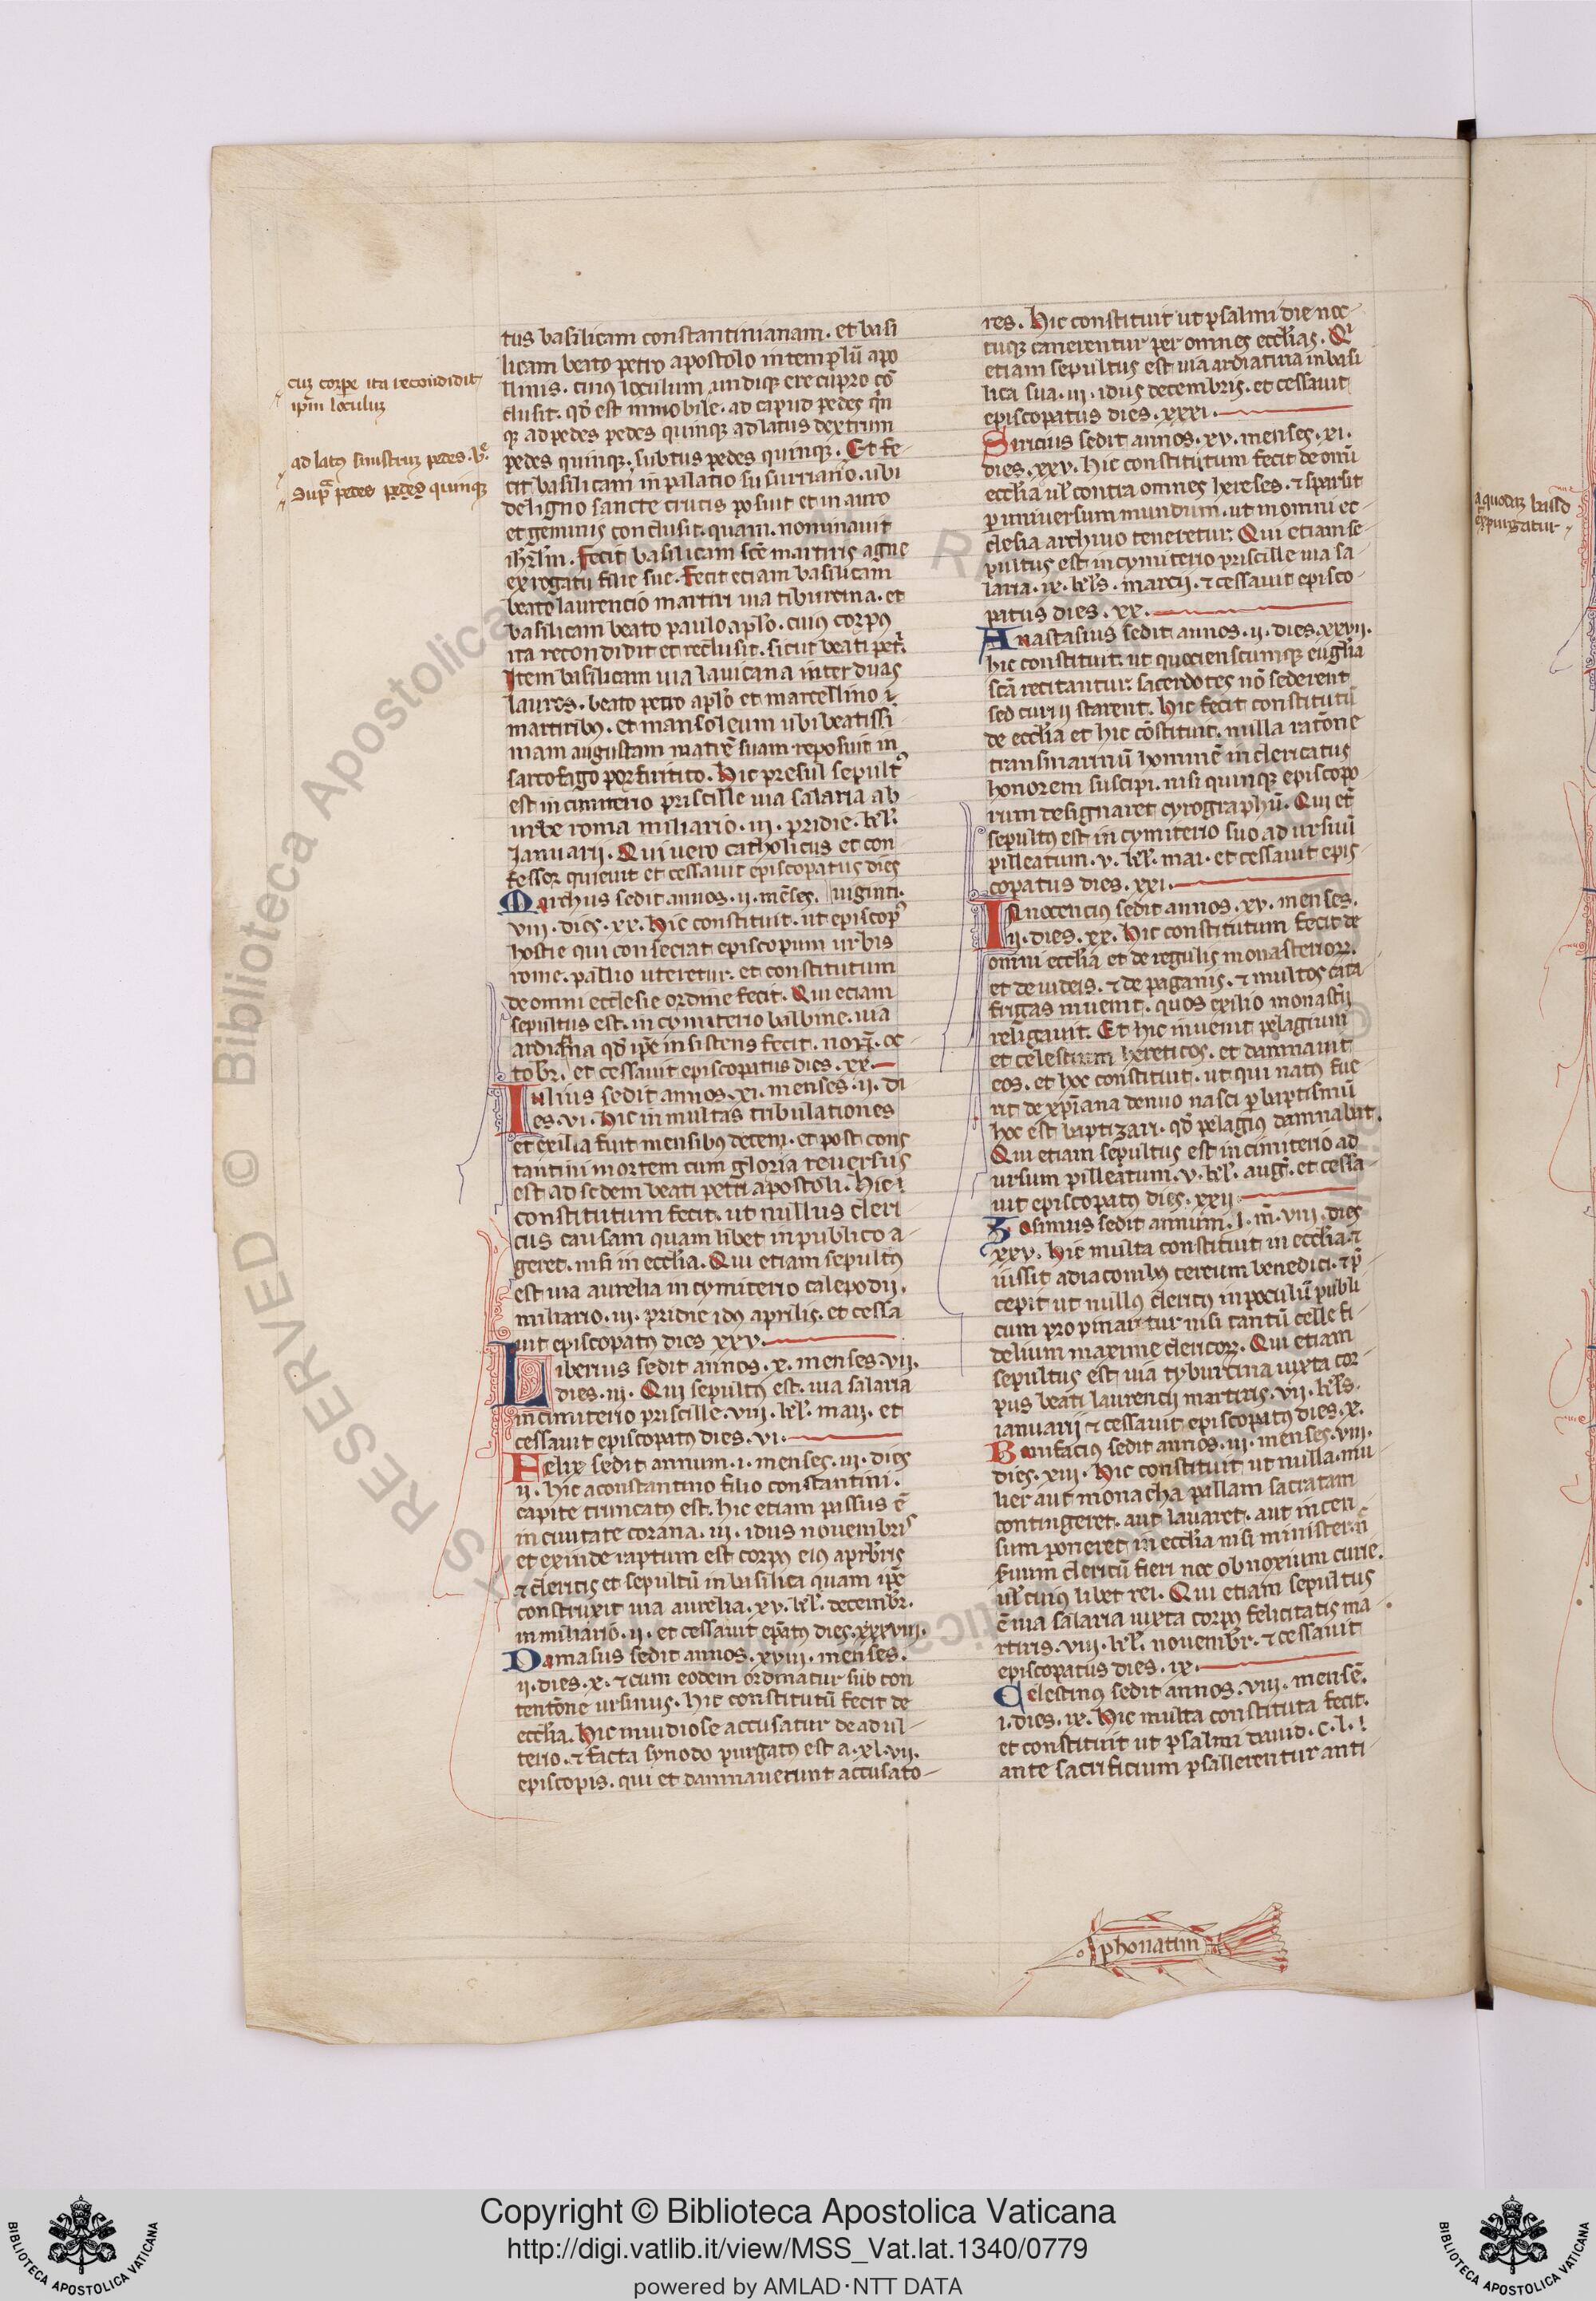 tus basilicam constantinianam . et basi
licam beato petro apostolo in templū apo
llinis . cuius loculum undique ere cupro cō
clusit . qd̄ est inmobile . ad capud pedes qn̄
qz ad pedes pedes quinqz ad latus dextrum
pedes quinqz . subtus pedes quinqz . Et fe
cit basilicam in palatio su surriano . ubi
de ligno sancte crucis posuit et in auro
et gemmis conclusit . quam . nominauit
ihrl̄m . Fecit basilicam scē martiris agne
ex rogatu filie sue . Fecit eciam basilicam
beato laurencio martiri uia tiburtina . et
basilicam beato paulo apl̄o . cui9 corp9
ita recondidit et reclusit . sicut beati petri
Item basilicam uia lauicana inter duas
laures . beato petro apl̄o et marcellino i
martirib9 . et mausoleum ubi beatissi
mam augustam matrē suam reposuit in
sarcofago porfiritico . Hic presul sepult9
est in cimiterio priscille uia salaria ab
urbe roma miliario . iii . pridie . kl̄ .
Ianuarij . Qui uero catholicus et con
fessor quieuit et cessauit episcopatus dies
Marchus sedit annos . ii . mēses . uiginti .
viii . dies . xx . Hic constituit . ut episcop9
hostie qui consecrat episcopum urbis
rome . pallio uteretur . et constitutum
de omni ecclesie ordine fecit . Qui eciam
sepultus est . in cymiterio balbine . uia
ardiatina qd̄ ipe insistens fecit . non̄ . oc
tobr . et cessauit episcopatus dies . xx .
Iulius sedit annos . xi . menses . ii . di
es . vi . Hic in multas tribulationes
et exilia fuit mensib9 decem . et post cons
tantini mortem cum gloria reuersus
est ad sedem beati petri apostoli . Hic i
constitutum fecit . ut nullus cleri
cus causam quam libet in publico a
geret . nisi in eccl̄ia . Qui etiam sepult9
est uia aurelia in cymiterio calepodij .
miliario . iii . pridie id9 aprilis . et cessa
uit episcopat9 dies xxv .
Liberius sedit annos . x . menses . vii .
dies . iii . Qui sepult9 est . uia salaria
in cimiterio priscille . viii . kl̄ . maij . et
cessauit episcopat9 dies . vi .
Felix sedit annum . i . menses . iii . dies
ii . hic a constantino filio constantini .
capite truncat9 est . hic etiam passus ē
in ciuitate corana . iii . idus nouembris
et exinde raptum est corp9 ei9 a prb̄ris
et clericis et sepultū in basilica quam ipē
construxit uia aurelia . xv . kl̄ . decembr .
in miliario . ii . et cessauit ep̄at9 dies . xxxviii .
Damasus sedit annos . xviii . menses .
ii . dies . x . et cum eodem ordinatur sub con
tentōne ursinus . hic constitutū fecit de
eccl̄ia . Hic inuidiose accusatur de adul-
terio . et facta synodo purgat9 est a . xl . vii .
episcopis . qui et damnauerunt accusato-
cuz corpe ita recondidit
ip̄m loculuz
ad lat9 sinistruz pedes . v̄e .
supra pedes pedes quinqz
res . Hic constituit ut psalmi die noc-
tuqz canerentur per omnes eccl̄ias . Qi
etiam sepultus est uia ardiatina in basi
lica sua . iii . idus decembris . et cessauit
episcopatus dies . xxxi .
Siricius sedit annos . xv . menses . xi .
dies . xxv . hic constitutum fecit de omī
eccl̄ia ul̄ contra omnes hereses . et sparsit
p uniuersum mundum . ut in omni ec-
clesia archiuo teneretur . Qui etiam se-
pultus est in cymiterio priscille uia sa-
laria . ix . kl̄s . marcij . et cessauit episco-
patus dies . xx .
Anastasius sedit annos . ii . dies . xxvii .
hic constituit . ut quocienscumqz eugl̄ia
scā recitantur : sacerdotes nō sederent
sed curui starent . Hic fecit constitutū
de eccl̄ia et hic cōstituit . nulla ratōne
transmarinū hominē in clericatus
honorem suscipi . nisi quinqz episcopo
rum designaret cyrographū . Qui et̄
sepult9 est in cymiterio suo ad ursuū
pilleatum . v . kl̄ . mai . et cessauit epis-
copatus dies . xxi .
Innocenci9 sedit annos . xv . menses .
ii . dies . xx . Hic constitutum fecit de
omni eccl̄ia et de regulis monasteriorz .
et de iudeis . et de paganis . et multos cata-
frigas inuenit . quos exilio monastīi
religauit . Et hic inuenit pelagium
et celestium hereticos . et damnauit
eos . et hoc constituit . ut qui nat9 fue-
rit de xp̄iana denuo nasci p baptismū
hoc est baptizari . qd̄ pelagi9 damnabat .
Qui etiam sepultus est in cimiterio ad
ursum pilleatum . v . kl̄ . auḡ . et cessa-
uit episcopat9 dies . xxii .
Zosimus sedit annum . i . m̄ . viii . dies
xxv . Hic multa constituit in eccl̄ia . et
iussit a diaconib9 cereum benedici . et p̄
cepit ut null9 cleric9 in poculū publi
cum propinaretur nisi tantū celle fi
delium maxime clericorz . Qui etiam
sepultus est uia tyburtina iuxta cor-
pus beati laurencij martiris . vii . kl̄s .
ianuarij et cessauit episcopat9 dies . x .
Bonifaci9 sedit annos . iii . menses . viii .
dies . xiii . Hic constituit ut nulla . mu-
lier aut monacha pallam sacratam
contingeret . aut lauaret . aut incen-
sum poneret in eccl̄ia nisi minister . n̄
seruum clericū fieri nec obnoxium curie .
ul̄ cui9 libet rei . Qui etiam sepultus
ē uia salaria iuxta corp9 felicitatis ma-
rtiris . viii . kl̄ . nouembr . et cessauit
episcopatus dies . ix .
Celestin9 sedit annos . viii . mensē .
i . dies . ix . Hic multa constituta fecit .
et constituit ut psalmi dauid . c . l . i
ante sacrificium psallerentur anti
phonatim
a quodaz basso
expurgatur
Copyright © Biblioteca Apostolica Vaticana
http://digi.vatlib.it/view/MSS_Vat.lat.1340/0779
powered by AMLAD·NTT DATA
BIBLIOTECA APOSTOLICA VATICANA
BIBLIOTECA APOSTOLICA VATICANA